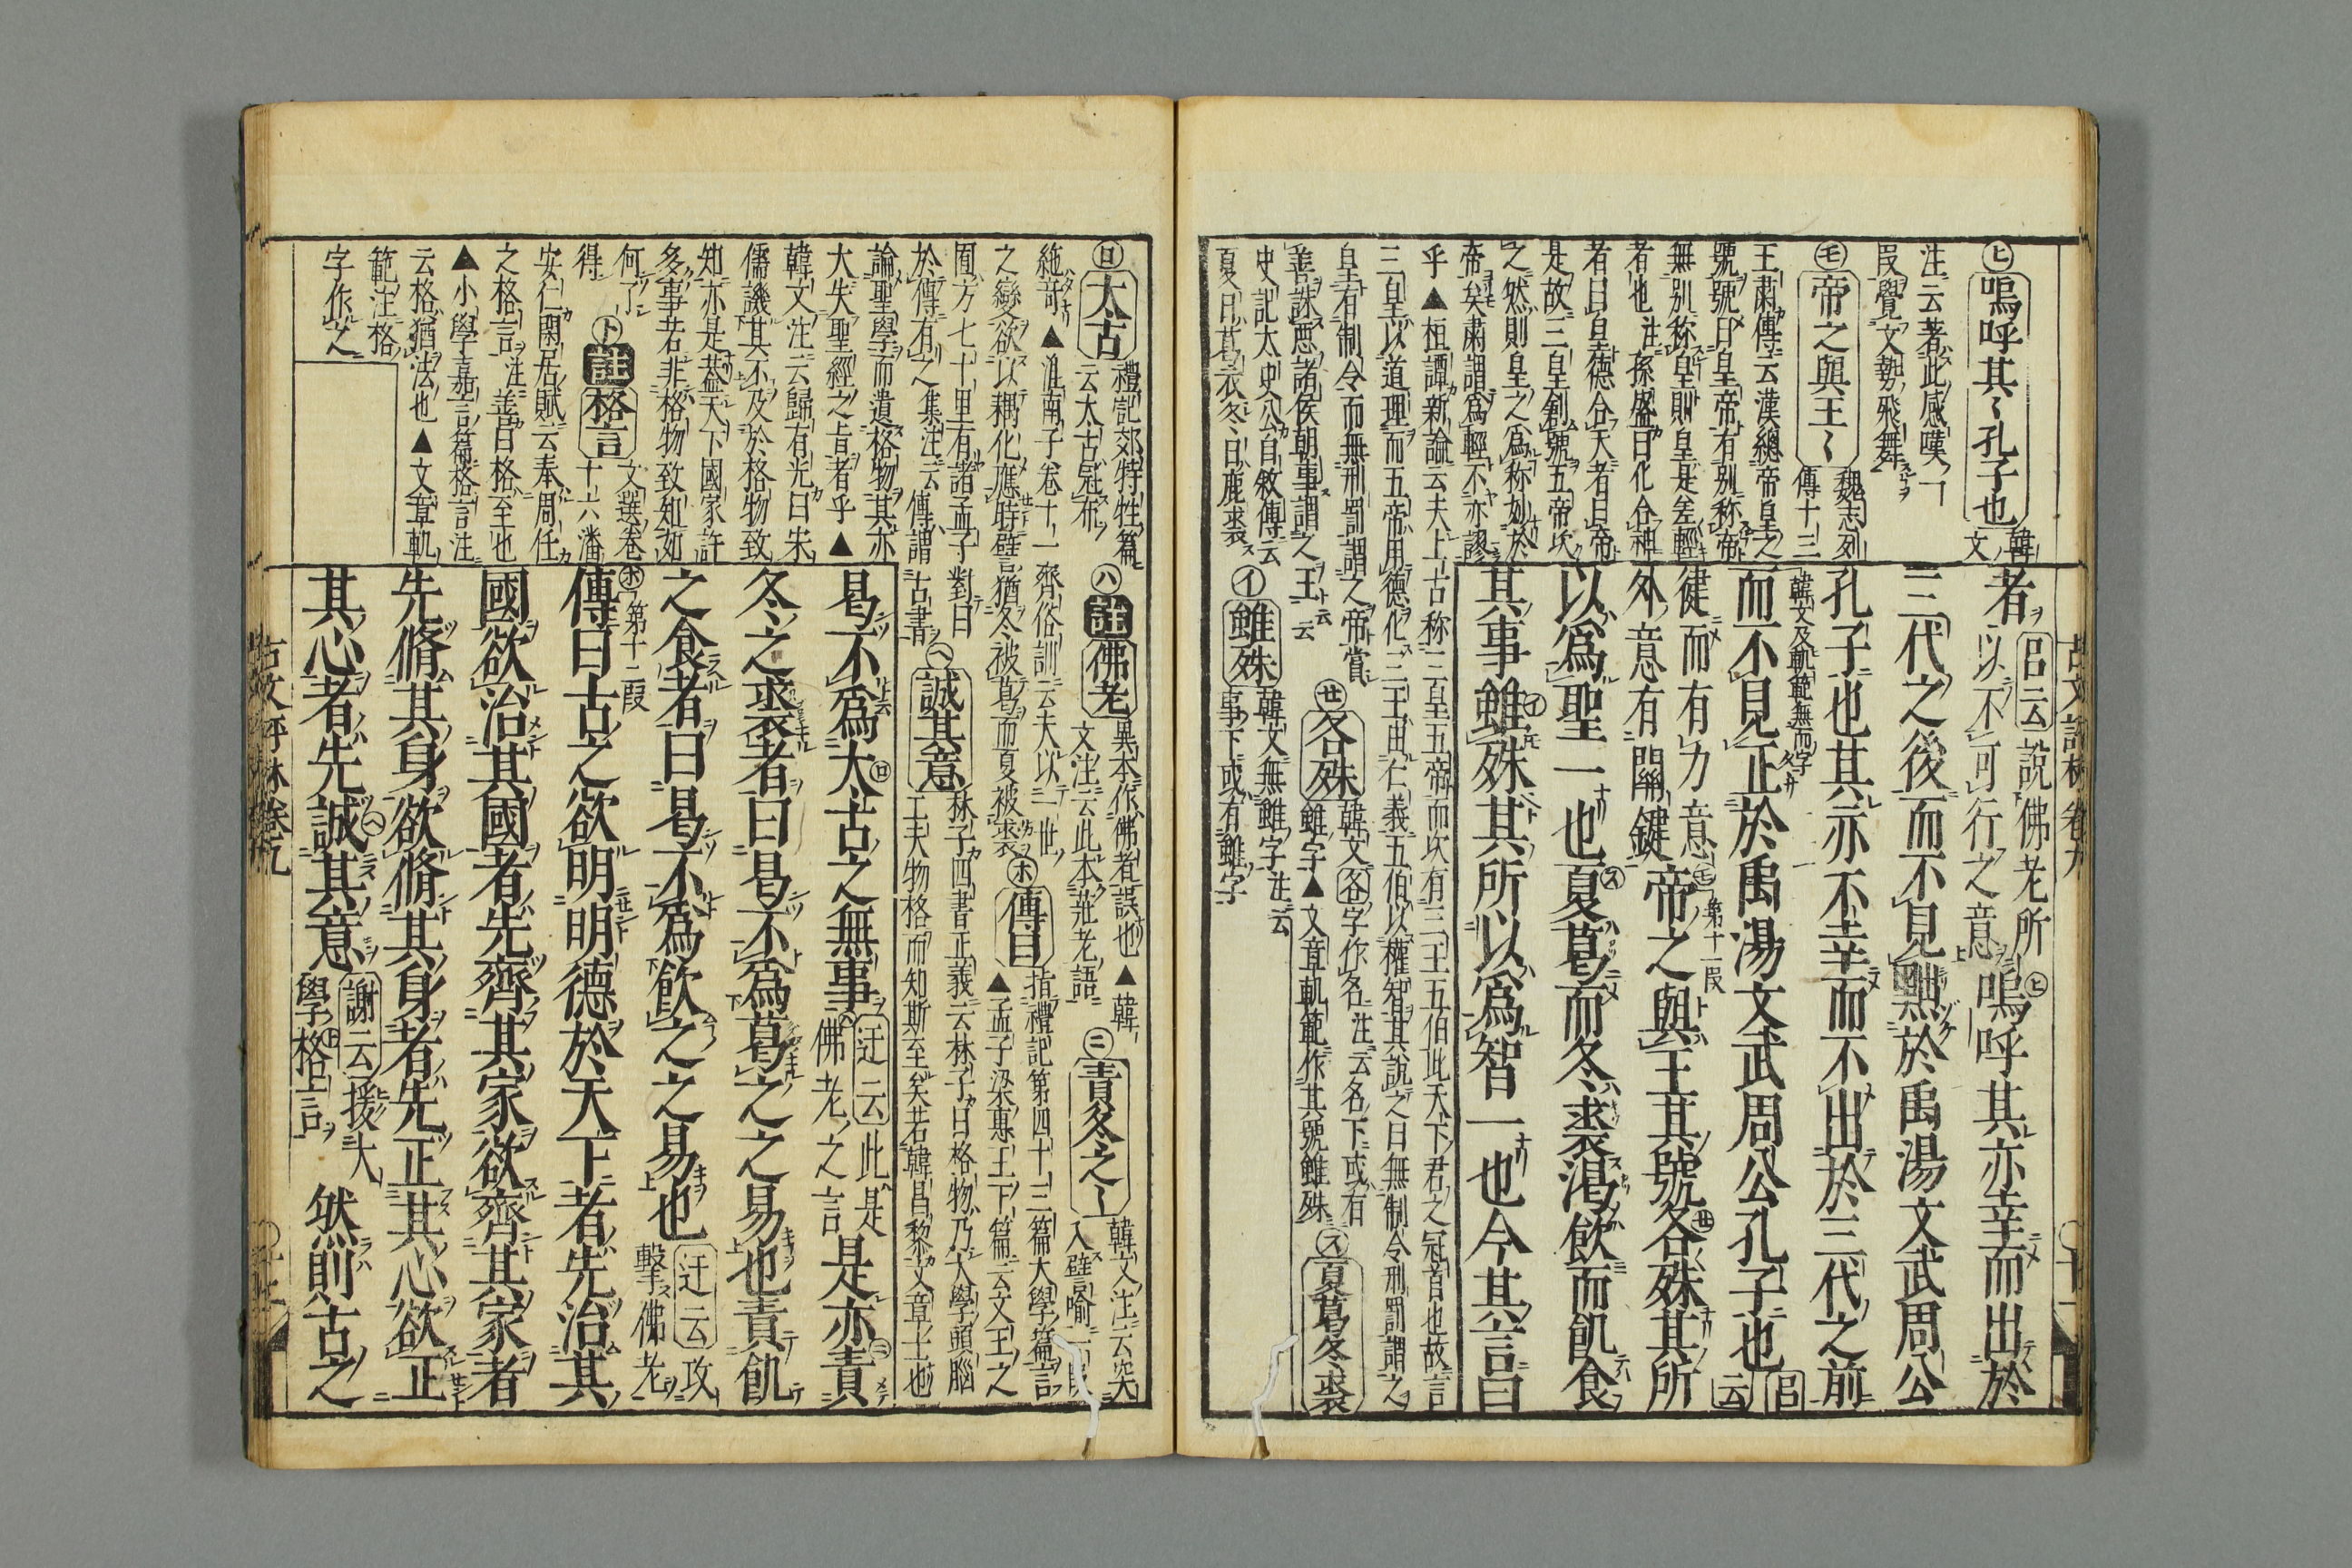 古文評林卷九
㋪嗚呼其〻孔子也韓文
注云著此感嘆一
段覺文勢飛舞
㋲帝之與王〻魏志列傳十三
王肅傳云漢總帝皇之
號號曰皇帝有別称帝
無別称皇則皇是差輕
者也注孫盛曰化合神
者曰皇德合天者曰帝
是故三皇創號五帝次
之然則皇之為称妙於
帝矣肅謂為輕不亦謬
乎▲桓譚新論云夫上古称三皇五帝而次有三王五伯此天下君之冠首也故言
三皇以道理而五帝用德化三王由仁義五伯以權智其說之曰無制令刑罰謂之
皇有制令而無刑罰謂之帝賞
善誅惡諸侯朝事謂之王云云
㋝各殊韓文各字作名注云各下或有
雖字▲文章軌範作其號雖殊
㋜夏葛冬裘
史記太史公自敘傳云
夏日葛衣冬日鹿裘
㋑雖殊韓文無雖字注云
事下或有雖字
者呂云說佛老所以不可行之意嗚呼其亦幸而出於
三代之後而不見黜於禹湯文武周公
孔子也其亦不幸而不出於三代之前
韓文及軌範無而字
而不見正於禹湯文武周公孔子也呂云
健而有力意
外意有關鍵第十一段帝之與王其號各殊其所
以為聖一也夏葛而冬裘渴飲而飢食
其事雖殊其所以為智一也今其言曰
㋺太古禮記郊特牲篇
云太古冠布
㋩註佛老異本作佛者誤也▲韓
文注云此本莊老語
㋥責冬之〻韓文注云突
入譬喻一段
絺奇▲淮南子卷十一齊俗訓云夫以一世
之變欲以耦化應時譬猶冬被葛而夏被裘
㋭傳曰指禮記第四十三篇大學篇言
▲孟子梁惠王下篇云文王之
囿方七十里有諸孟子對曰
於傳有之集注云傳謂古書
㋬誠其意林子四書正義云林子曰格物乃大學頭腦
工夫物格而知斯至矣若韓昌黎文章士也
論聖學而遺格物其亦
大失聖經之旨者乎▲
韓文注云歸有光曰宋
儒譏其不及於格物致
知亦是蓋天下國家許
多事若非格物致知如
何了得
㋣註格言文選卷十六潘
安仁閑居賦云奉周任
之格言注善曰格至也
▲小學嘉言篇格言注
云格猶法也▲文章軌
範注格
字作之
曷不為太古之無事迂云此是佛老之言是亦責
冬之裘者曰曷不為葛之之易也責飢
之食者曰曷不為飲之之易也迂云攻擊佛老
第十二段
傳曰古之欲明明德於天下者先治其
國欲治其國者先齊其家欲齊其家者
先脩其身欲脩其身者先正其心欲正
其心者先誠其意謝云援大學格言然則古之
古文評林卷九